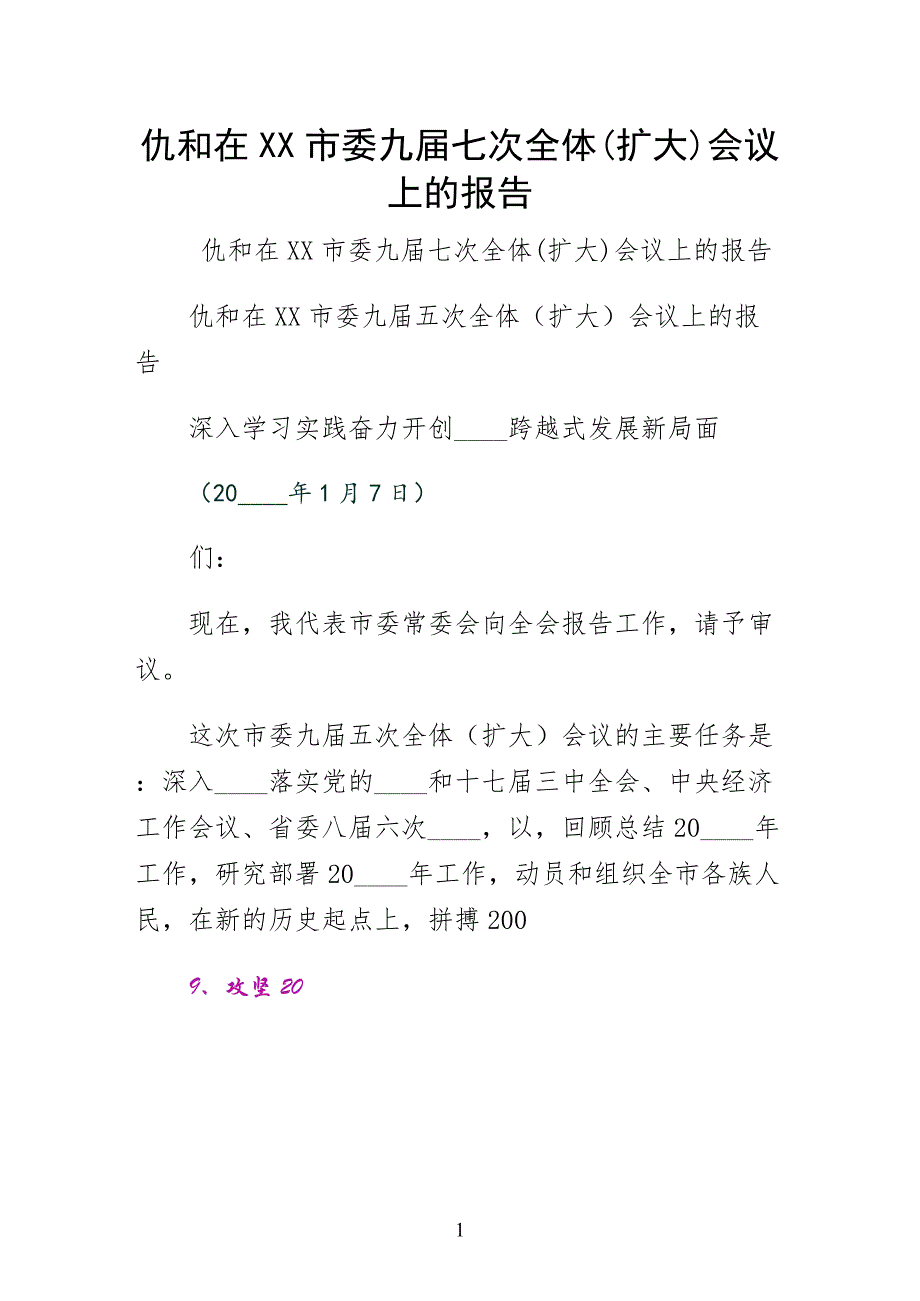 仇和在 XX 市委九届七次全体(扩大)会议
上的报告
仇和在 XX 市委九届七次全体(扩大)会议上的报告
仇和在 XX 市委九届五次全体（扩大）会议上的报
告
深入学习实践奋力开创____跨越式发展新局面
（20____年 1 月 7 日）
们：
现在，我代表市委常委会向全会报告工作，请予审
议。
这次市委九届五次全体（扩大）会议的主要任务是
：深入____落实党的____和十七届三中全会、中央经济
工作会议、省委八届六次____，以，回顾总结 20____年
工作，研究部署 20____年工作，动员和组织全市各族人
民，在新的历史起点上，拼搏 200
9、攻坚 20
1